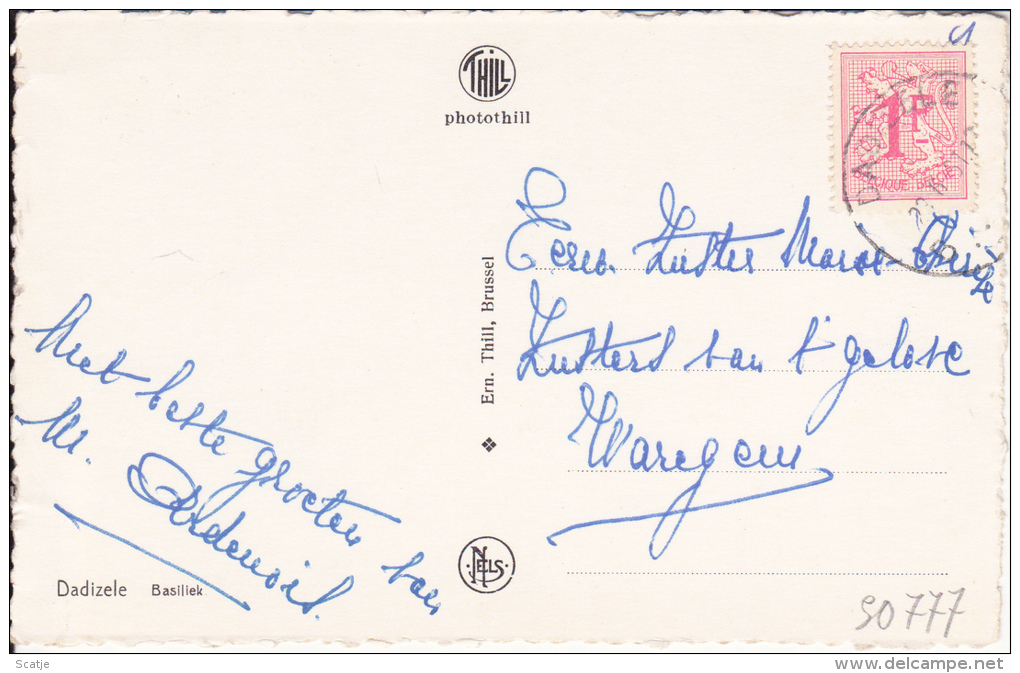 THILL
photothill
1F
BELGIQUE BELGIE
Eerw. Zuster Marie-
Zusters van 't gelove
Waregem
Met beste groeten van
M.
Ern. Thill, Brussel
NELS
Dadizele Basiliek
90777
Scatje
www.delcampe.net